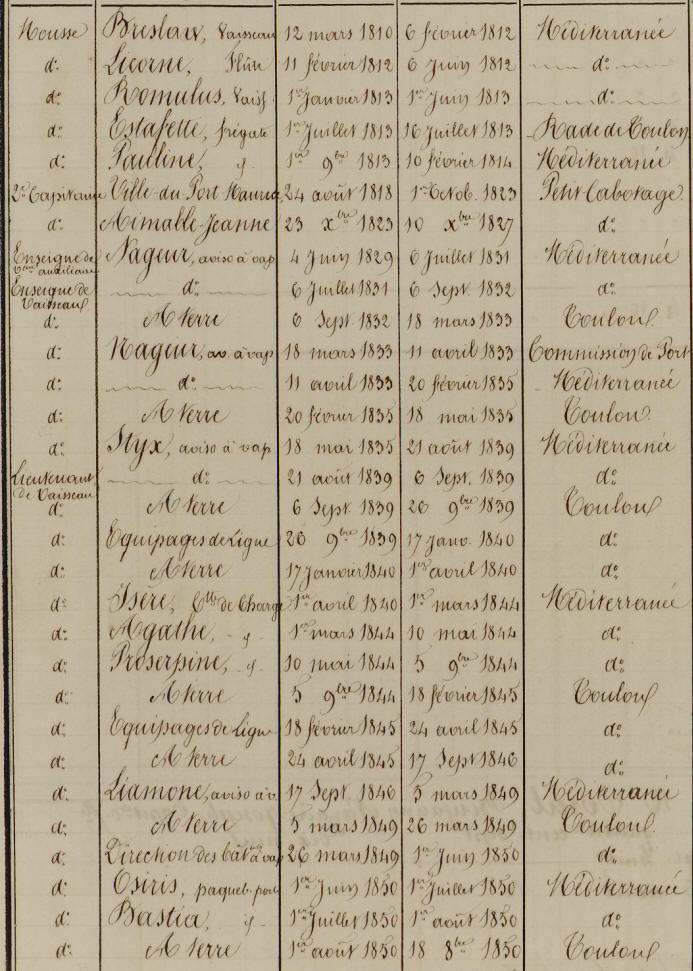 Mousse Breslaw, Vaisseau 12 mars 1810 6 février 1812 Méditerranée
do. Licorne, Flûte 11 février 1812 6 Juin 1812 do.
do. Romulus, Vaiss. 1er Janvier 1813 1er Juin 1813 do.
do. Estafette, frégate 1er Juillet 1813 16 Juillet 1813 Rade de Toulon
do. Pauline, id. 1er 9bre 1813 10 février 1814 Méditerranée
2e Capitaine Ville-du-Port Maurice 24 août 1818 1er Octob. 1823 Petit Cabotage.
do. Aimable-Jeanne 23 Xbre 1823 10 Xbre 1827 do.
Enseigne de Veau auxiliaire Nageur, aviso à vap 4 Juin 1829 6 Juillet 1831 Méditerranée
Enseigne de Vaisseau do. 6 Juillet 1831 6 Sept. 1832 do.
do. A terre 6 Sept 1832 18 mars 1833 Toulon.
do. Nageur, av. à vap 18 mars 1833 11 avril 1833 Commission de Port
do. do. 11 avril 1833 20 février 1835 Méditerranée
do. A terre 20 février 1835 18 mai 1835 Toulon.
do. Styx, aviso à vap 18 mai 1835 21 août 1839 Méditerranée
Lieutenant de Vaisseau do. 21 août 1839 6 Sept. 1839 do.
do. A terre 6 Sept. 1839 26 9bre 1839 Toulon
do. Equipages de Ligne 26 9bre 1839 17 Janv. 1840 do.
do. A terre 17 Janvier 1840 1er avril 1840 do.
do. Isère, Ctte de Charge 1er avril 1840 1er mars 1844 Méditerranée
do. Agathe, id. 1er mars 1844 10 mai 1844 do.
do. Proserpine, id. 10 mai 1844 5 9bre 1844 do.
do. A terre 5 9bre 1844 18 février 1845 Toulon
do. Equipages de Ligne 18 février 1845 24 avril 1845 do.
do. A terre 24 avril 1845 17 Sept 1846 do.
do. Liamone, aviso à v. 17 Sept. 1846 5 mars 1849 Méditerranée
do. A terre 5 mars 1849 26 mars 1849 Toulon.
do. Direction des bâtnts à vap 26 mars 1849 1er Juin 1850 do.
do. Osiris, paqueb. poste 1er Juin 1850 1er Juillet 1850 Méditerranée
do. Bastia, id. 1er Juillet 1850 1er août 1850 do.
do. A terre 1er août 1850 18 8bre 1850 Toulon